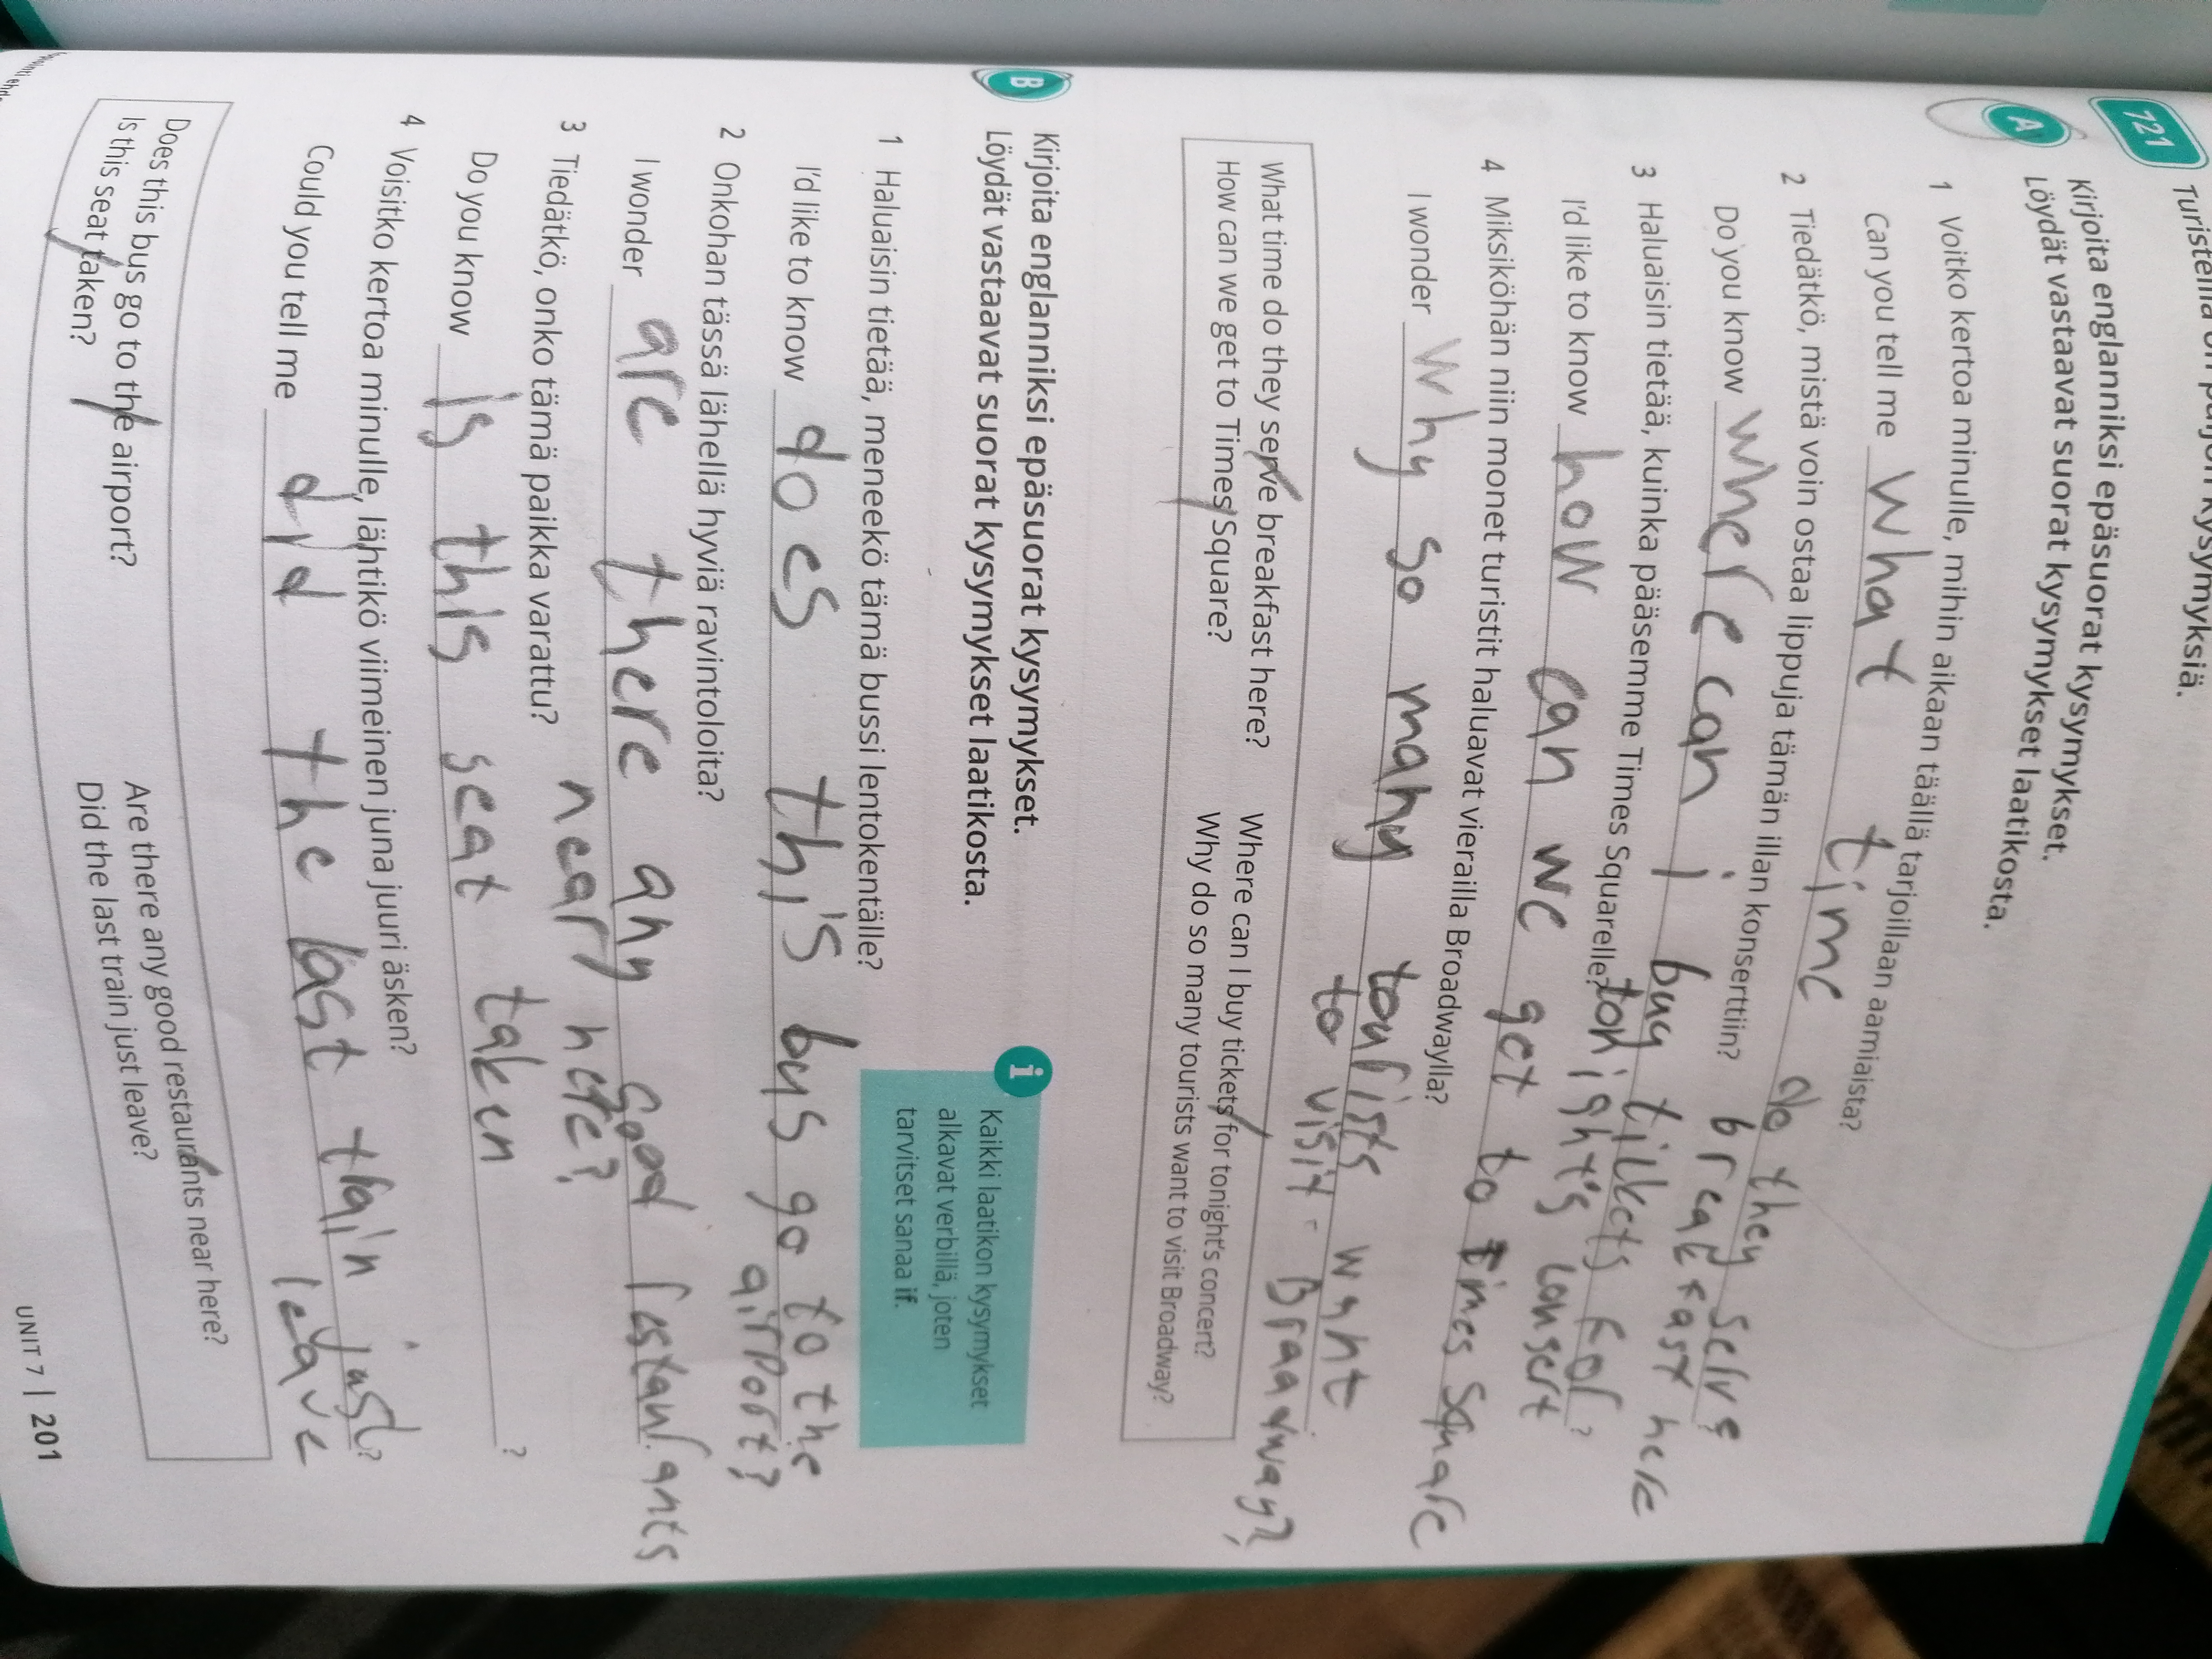 721
Kysymyksiä.
A Kirjoita englanniksi epäsuorat kysymykset.
Löydät vastaavat suorat kysymykset laatikosta.
1 Voitko kertoa minulle, mihin aikaan täällä tarjoillaan aamiaista?
Can you tell me what time do they serve
breakfast here
2 Tiedätkö, mistä voin ostaa lippuja tämän illan konserttiin?
Do you know where can i buy tickets for?
tonight's consert
3 Haluaisin tietää, kuinka pääsemme Times Squarelle?
I'd like to know how can we get to times square
4 Miksiköhän niin monet turistit haluavat vierailla Broadwaylla?
I wonder why so many tourists want
to visit - Braadway?
What time do they serve breakfast here? Where can I buy tickets for tonight's concert?
How can we get to Times Square? Why do so many tourists want to visit Broadway?
B Kirjoita englanniksi epäsuorat kysymykset.
Löydät vastaavat suorat kysymykset laatikosta.
i Kaikki laatikon kysymykset
alkavat verbillä, joten
tarvitset sanaa if.
1 Haluaisin tietää, meneekö tämä bussi lentokentälle?
I'd like to know does this bus go to the
airport?
2 Onkohan tässä lähellä hyviä ravintoloita?
I wonder are there any good restaurants
near here?
3 Tiedätkö, onko tämä paikka varattu?
Do you know is this seat taken ?
4 Voisitko kertoa minulle, lähtikö viimeinen juna juuri äsken?
Could you tell me did the last train just?
leave
Does this bus go to the airport? Are there any good restaurants near here?
Is this seat taken? Did the last train just leave?
UNIT 7 | 201